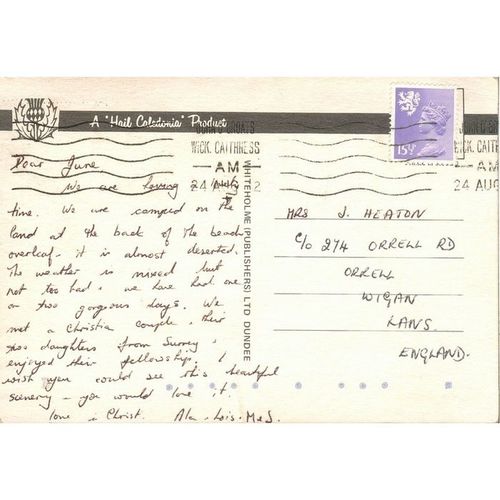 A "Hail Caledonia" Product
JOHN O'GROATS
WICK. CAITHNESS
AM
24 AUG
15½P
WICK. CAITHNESS
AM
24 AUG
Dear June
We are having
time. We are camped on the
land at the back of the beach
overleaf. it is almost deserted.
The weather is mixed but
not too bad. we have had one
or two gorgeous days. We
met a Christian couple & their
two daughters from Surrey &
enjoyed their fellowship. I
wish you could see this beautiful
scenery - you would love it.
love in Christ. Alan - Lois - M & J.
WHITEHOLME (PUBLISHERS) LTD DUNDEE
MRS J. HEATON
C/o 274 ORRELL RD
ORRELL
WIGAN
LANS.
ENGLAND.